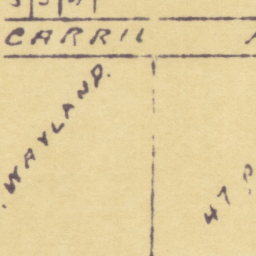 CARRIL
WAYLAND.
47